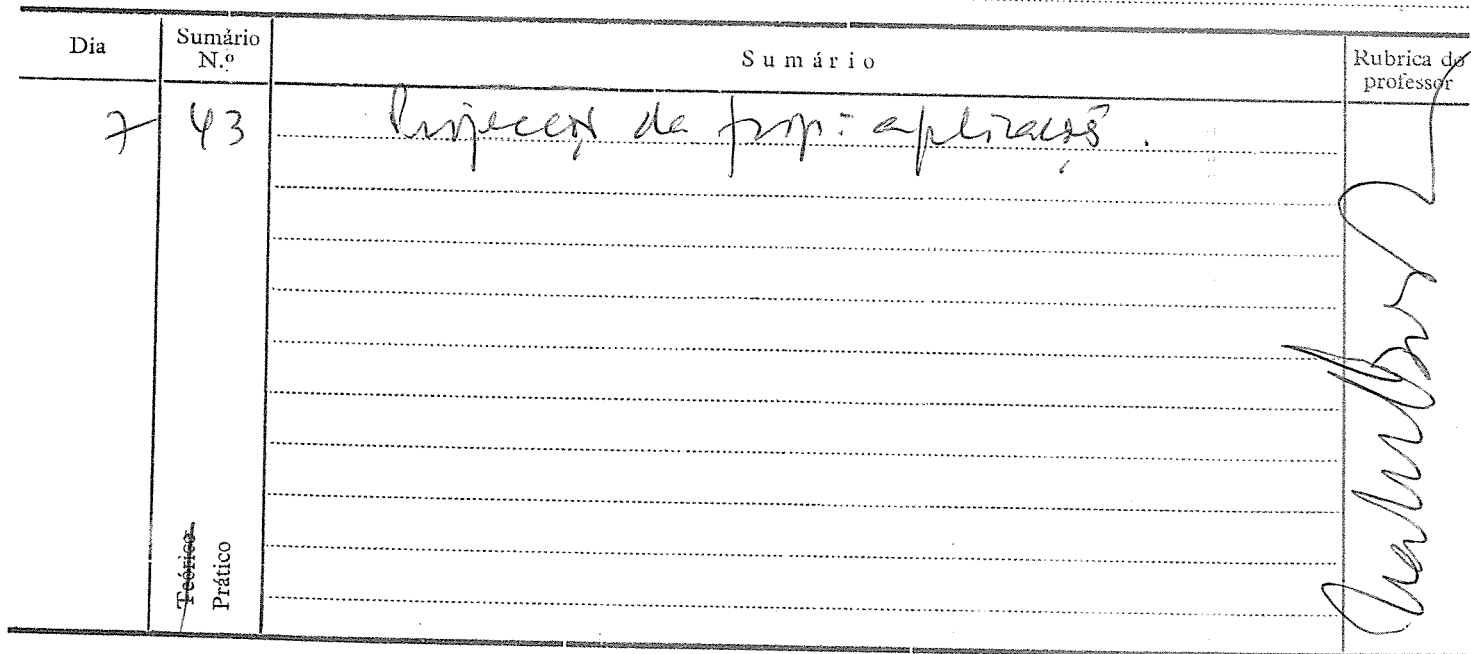 Dia
Sumário N.º
Sumário
Rubrica do professor
7
43
Projecções da : aplicações.
Teórico
Prático